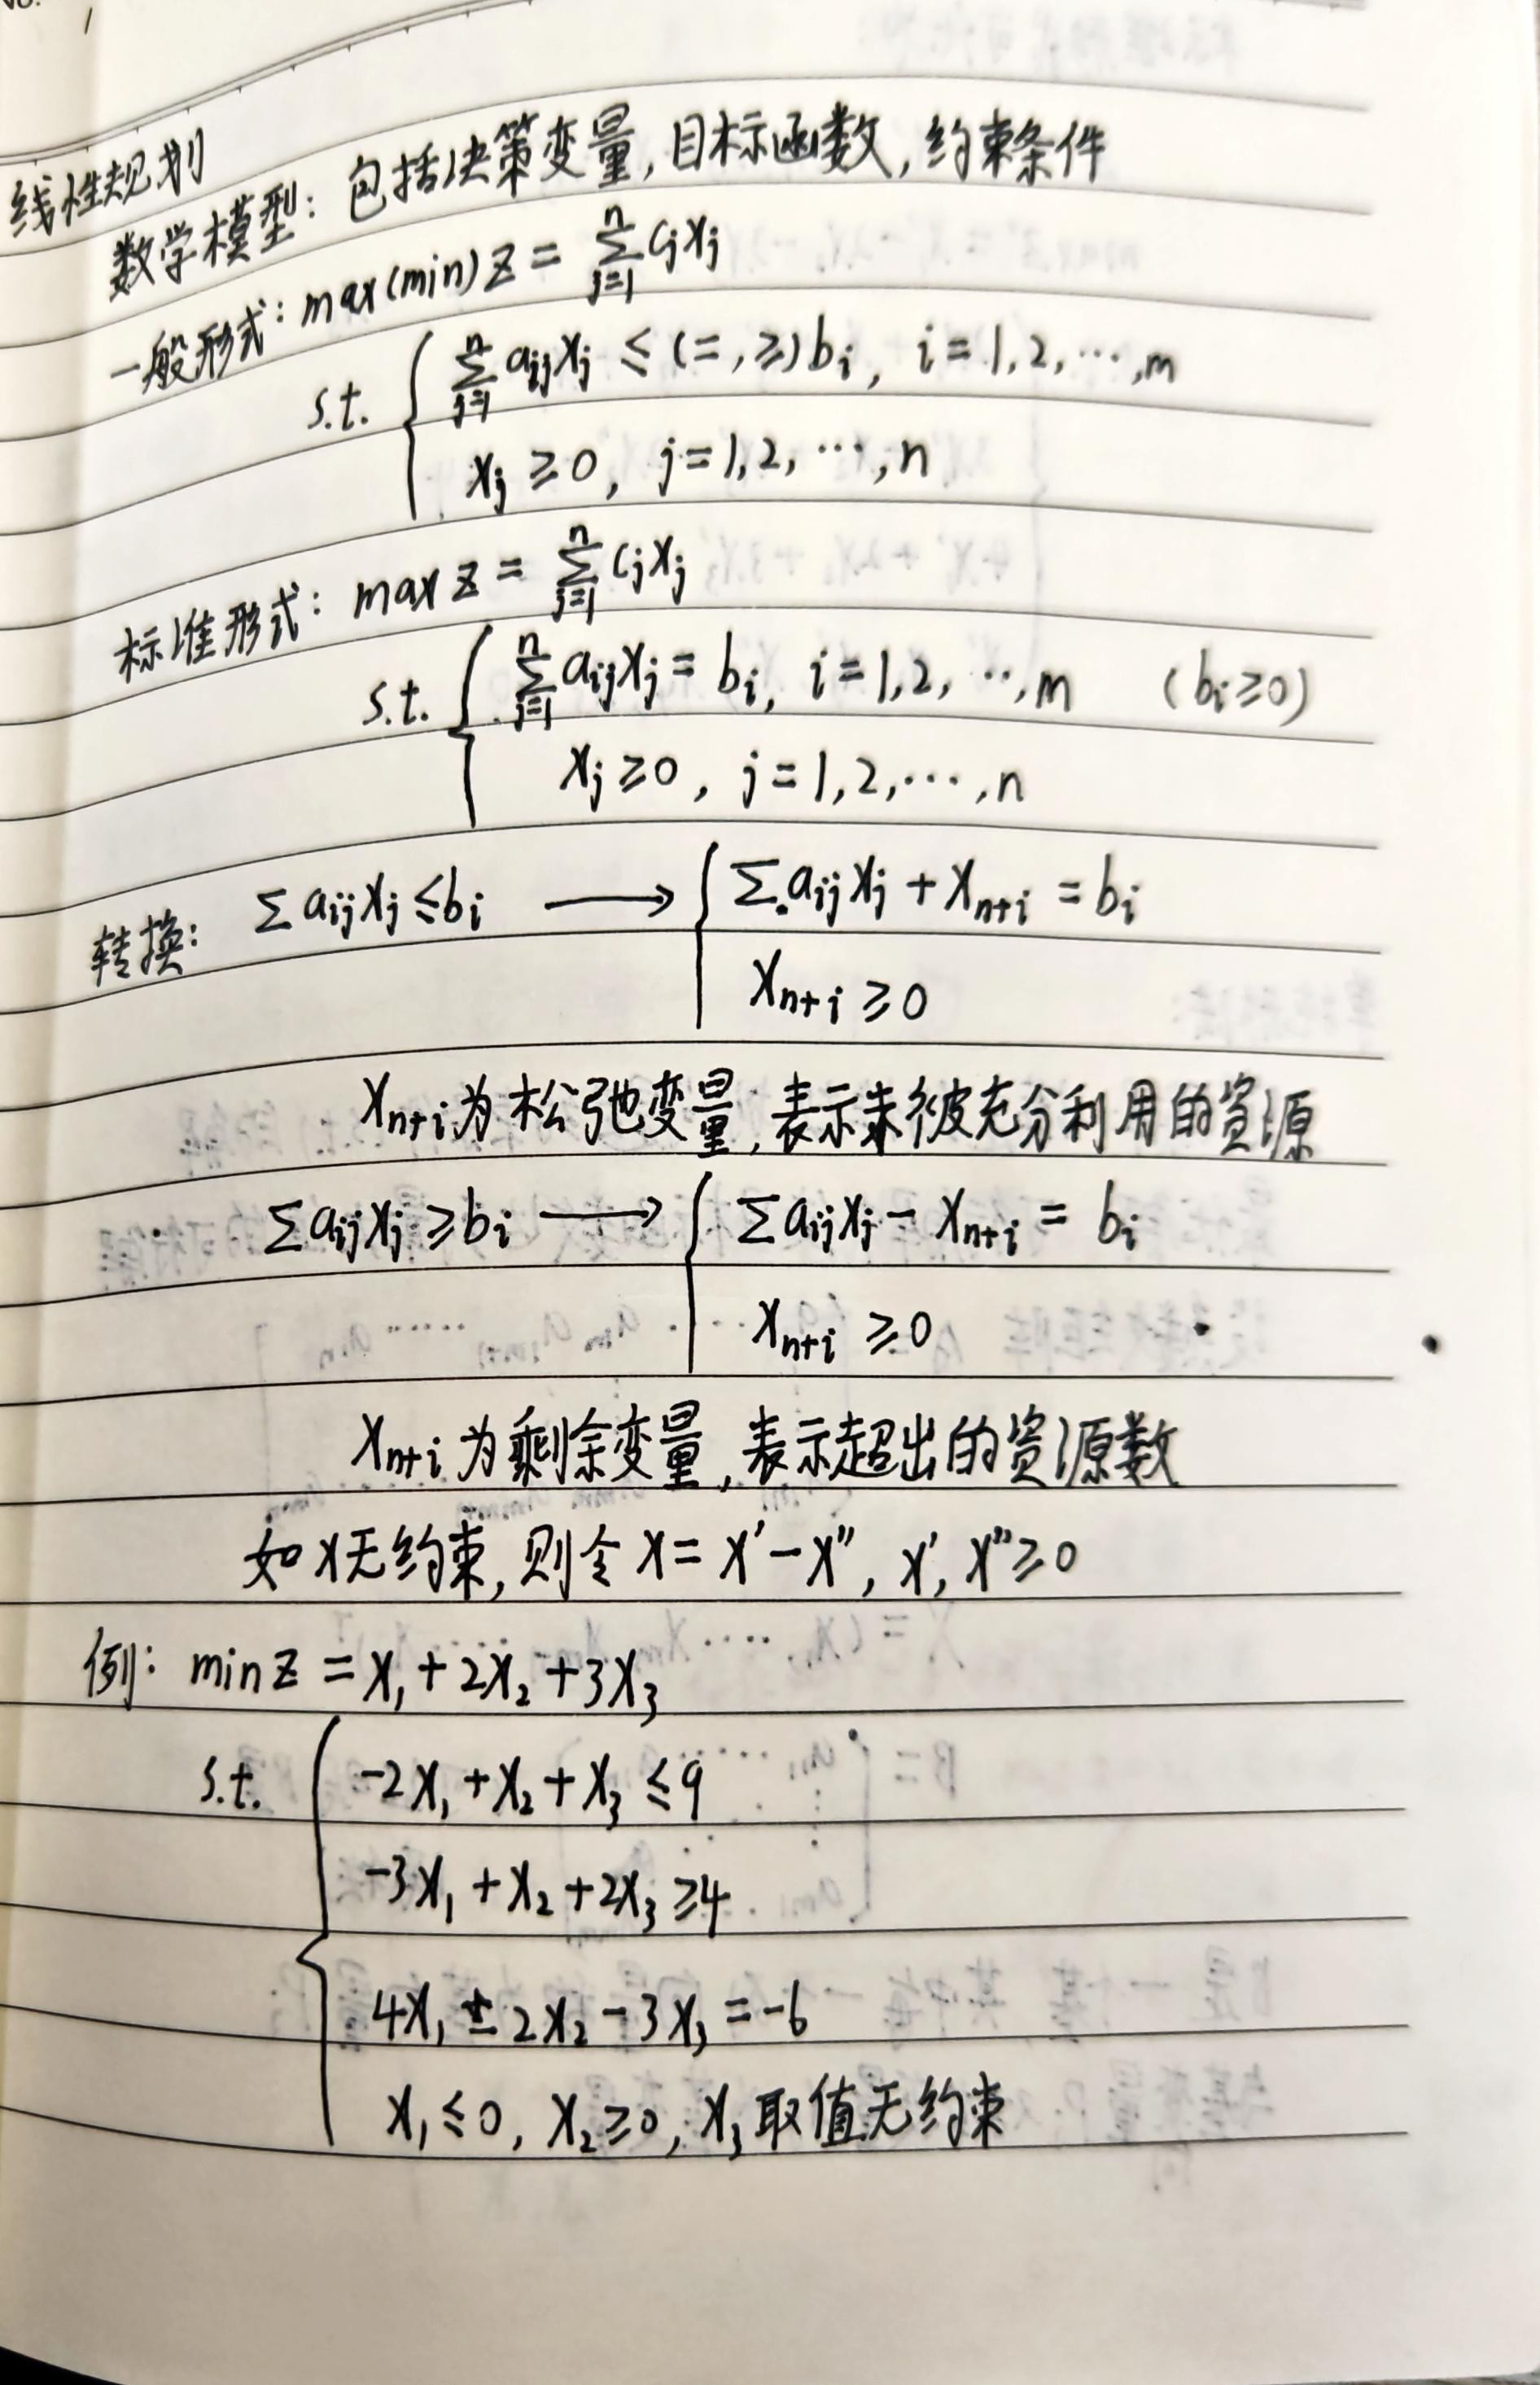 No.
线性规划
数学模型：包括决策变量，目标函数，约束条件
一般形式：max(min) z = ∑_{j=1}^{n} c_j x_j
s.t. { ∑_{j=1}^{n} a_{ij} x_j ≤ (=, ≥) b_i, i = 1, 2, ⋯, m
x_j ≥ 0, j = 1, 2, ⋯, n
标准形式：max z = ∑_{j=1}^{n} c_j x_j
s.t. { ∑_{j=1}^{n} a_{ij} x_j = b_i, i = 1, 2, ⋯, m (b_i ≥ 0)
x_j ≥ 0, j = 1, 2, ⋯, n
转换：∑ a_{ij} x_j ≤ b_i ⟶ { ∑ a_{ij} x_j + x_{n+i} = b_i
x_{n+i} ≥ 0
x_{n+i} 为松弛变量，表示未被充分利用的资源
∑ a_{ij} x_j ≥ b_i ⟶ { ∑ a_{ij} x_j − x_{n+i} = b_i
x_{n+i} ≥ 0
x_{n+i} 为剩余变量，表示超出的资源数
如 x 无约束，则令 x = x′ − x″, x′, x″ ≥ 0
例：min z = x_1 + 2x_2 + 3x_3
s.t. { −2x_1 + x_2 + x_3 ≤ 9
−3x_1 + x_2 + 2x_3 ≥ 4
4x_1 ± 2x_2 − 3x_3 = −6
x_1 ≤ 0, x_2 ≥ 0, x_3 取值无约束